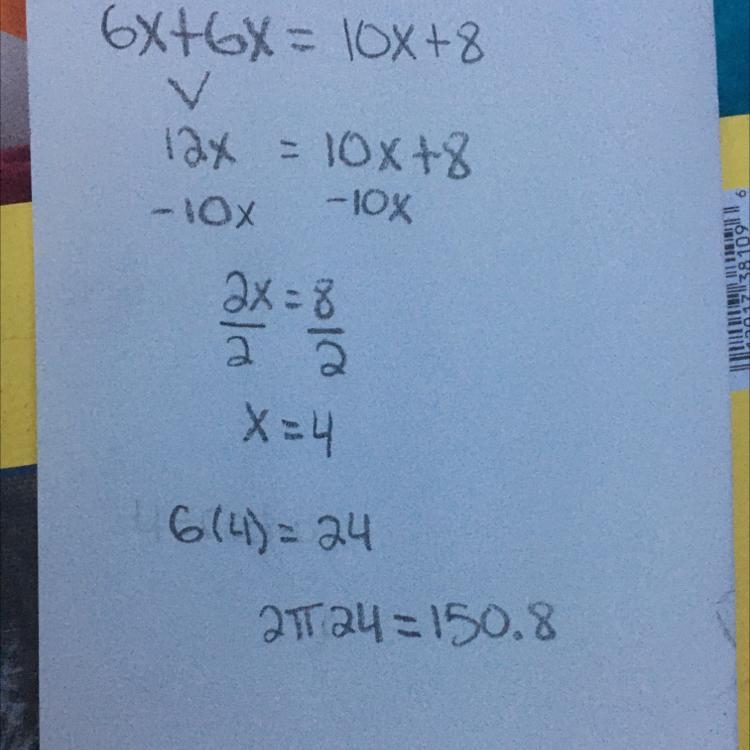 6x+6x = 10x+8
12x = 10x+8
-10x -10x
2x = 8
2 2
x = 4
6(4) = 24
2π24 = 150.8
38109 6